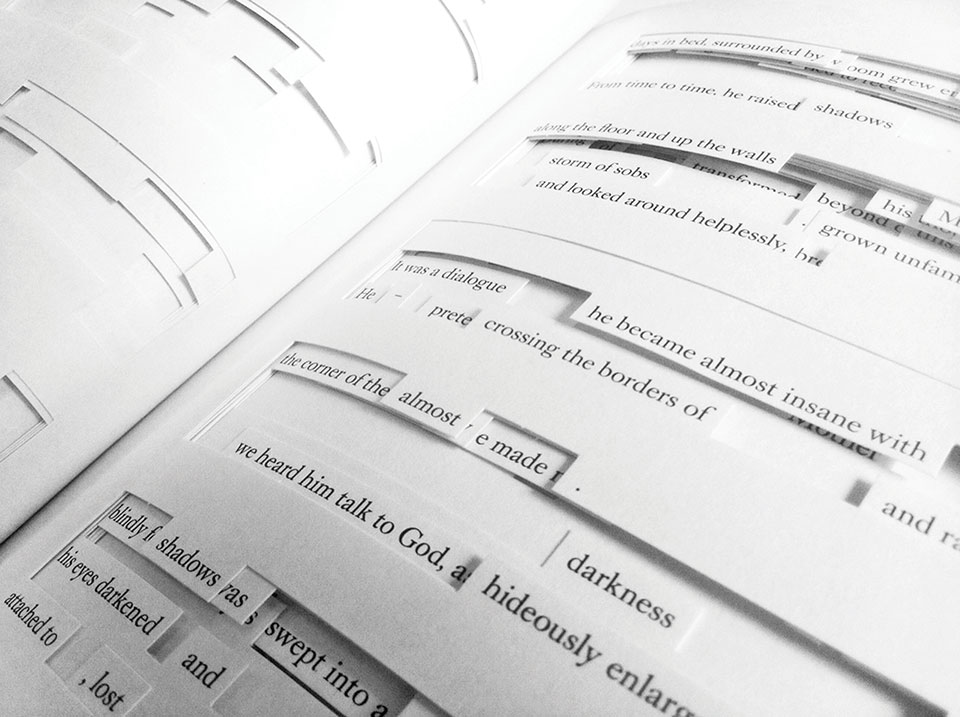 days in bed, surrounded by oom grew
From time to time, he raised shadows
along the floor and up the walls
transformed
storm of sobs beyond his M
and looked around helplessly, bre grown unfam
It was a dialogue he became almost insane with
He – prete crossing the borders of Mother
the corner of the almost e made and ra
we heard him talk to God, a darkness
blindly f shadows vas hideously enlarg
his eyes darkened swept into a
attached to and
, lost